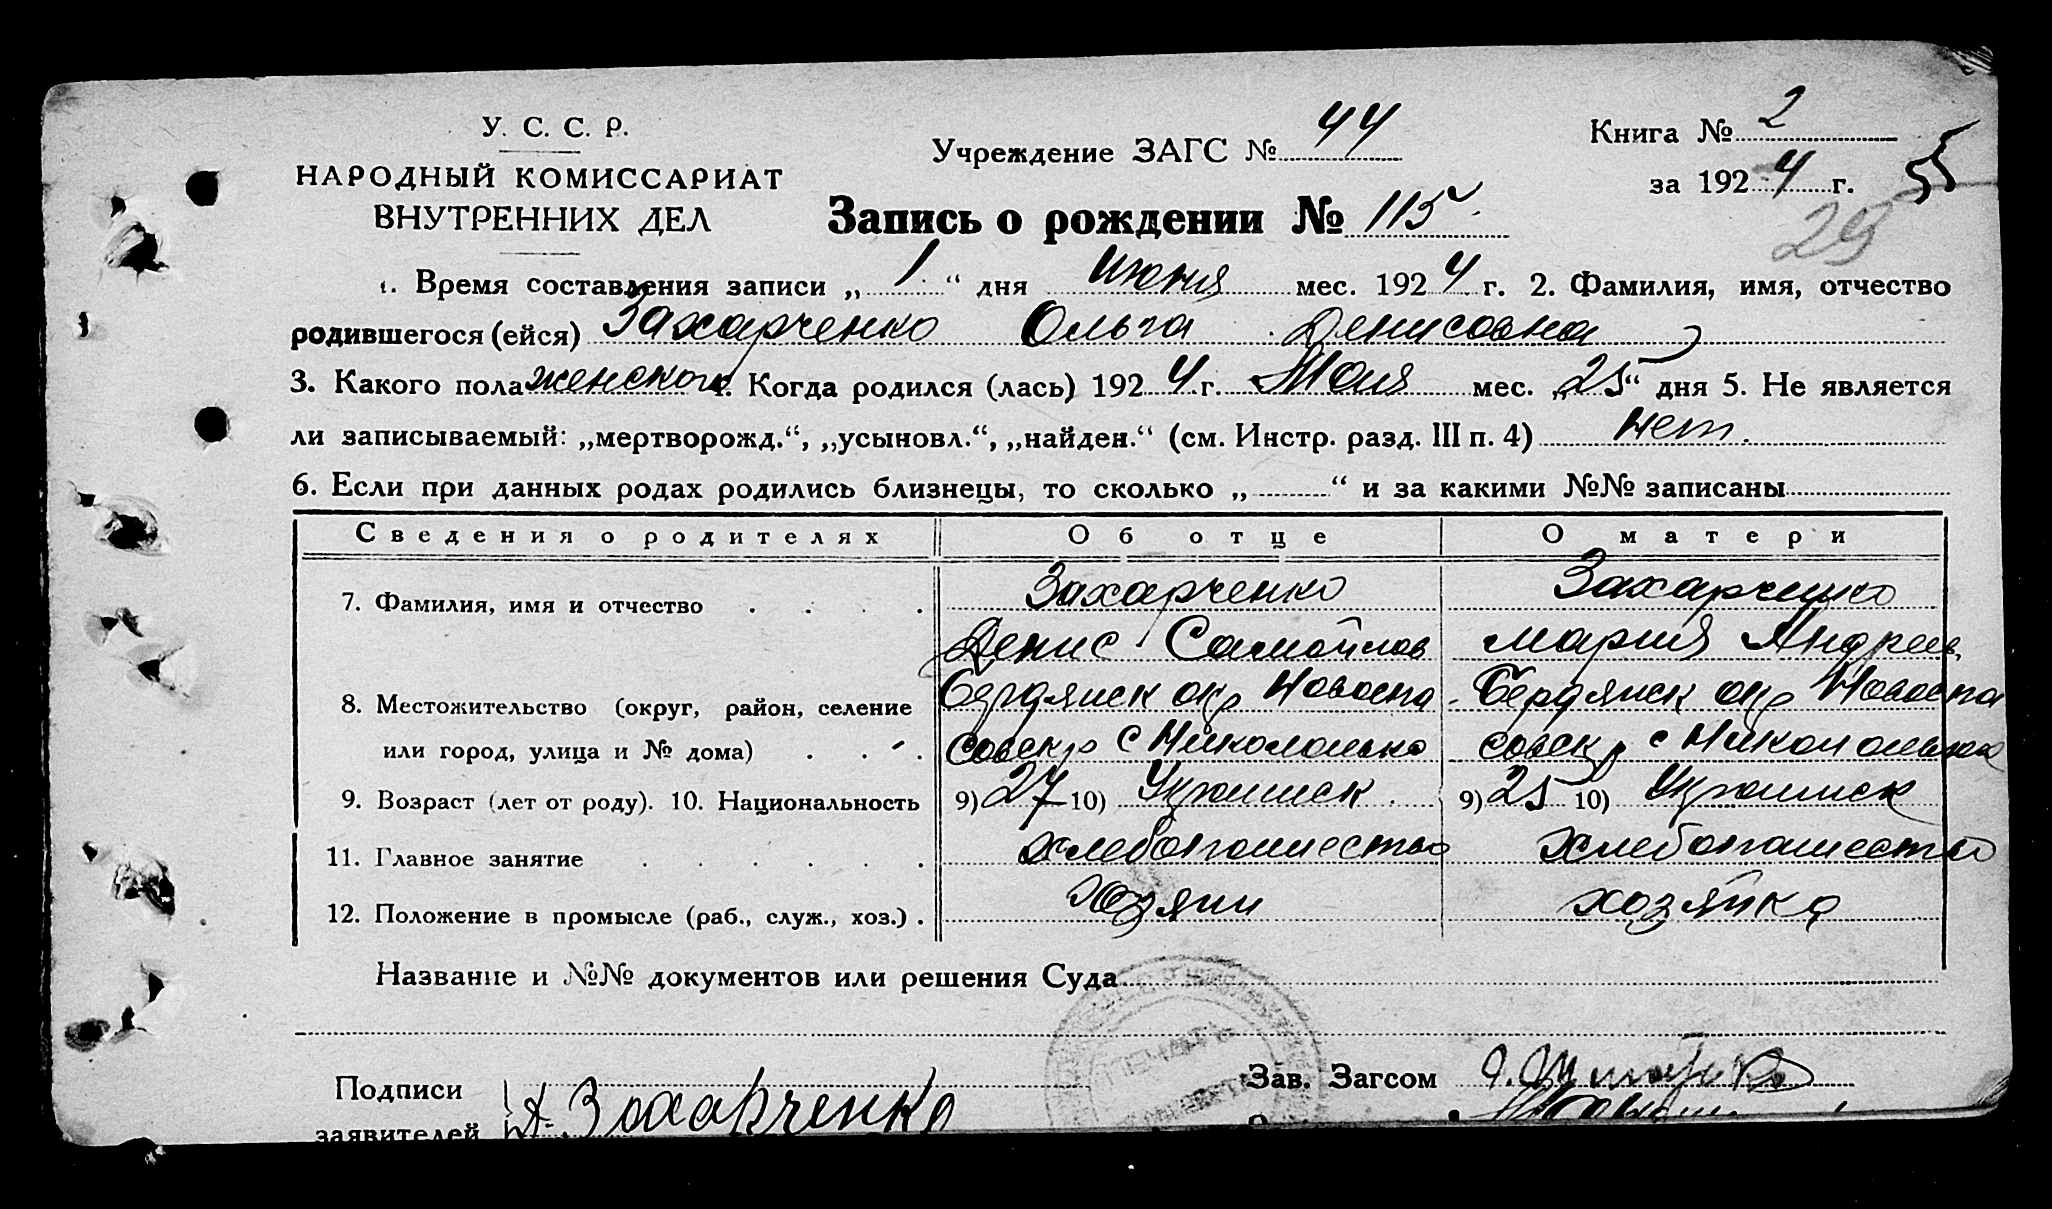 У. С. С. Р.
НАРОДНЫЙ КОМИССАРИАТ
ВНУТРЕННИХ ДЕЛ
Учреждение ЗАГС № 44
Книга № 2
за 1924 г. 55
29
Запись о рождении № 115
1. Время составления записи „1“ дня Июня мес. 1924 г. 2. Фамилия, имя, отчество
родившегося (ейся) Захарченко Ольга Денисовна
3. Какого пола женского 4. Когда родился (лась) 1924 г. Мая мес. „25“ дня 5. Не является
ли записываемый: „мертворожд.“, „усыновл.“, „найден.“ (см. Инстр. разд. III п. 4) Нет.
6. Если при данных родах родились близнецы, то сколько „ “ и за какими №№ записаны
Сведения о родителях Об отце О матери
7. Фамилия, имя и отчество Захарченко Захарченко
Денис Самойлов Мария Андреев
8. Местожительство (округ, район, селение Бердянск окр Новоспа Бердянск окр Новоспа
или город, улица и № дома) совск р с Николаевка совск р с Николаевка
9. Возраст (лет от роду). 10. Национальность 9) 27 10) Украинск 9) 25 10) Украинск
11. Главное занятие хлебопашество хлебопашество
12. Положение в промысле (раб., служ., хоз.) хозяин хозяйка
Название и №№ документов или решения Суда
ПЕЧАТЬ
Подписи Зав. Загсом
заявителей Д. Захарченко